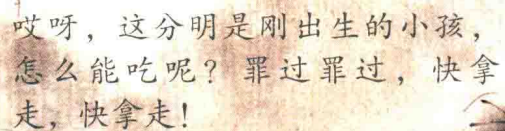 哎呀，这分明是刚出生的小孩，
怎么能吃呢？罪过罪过，快拿
走，快拿走！